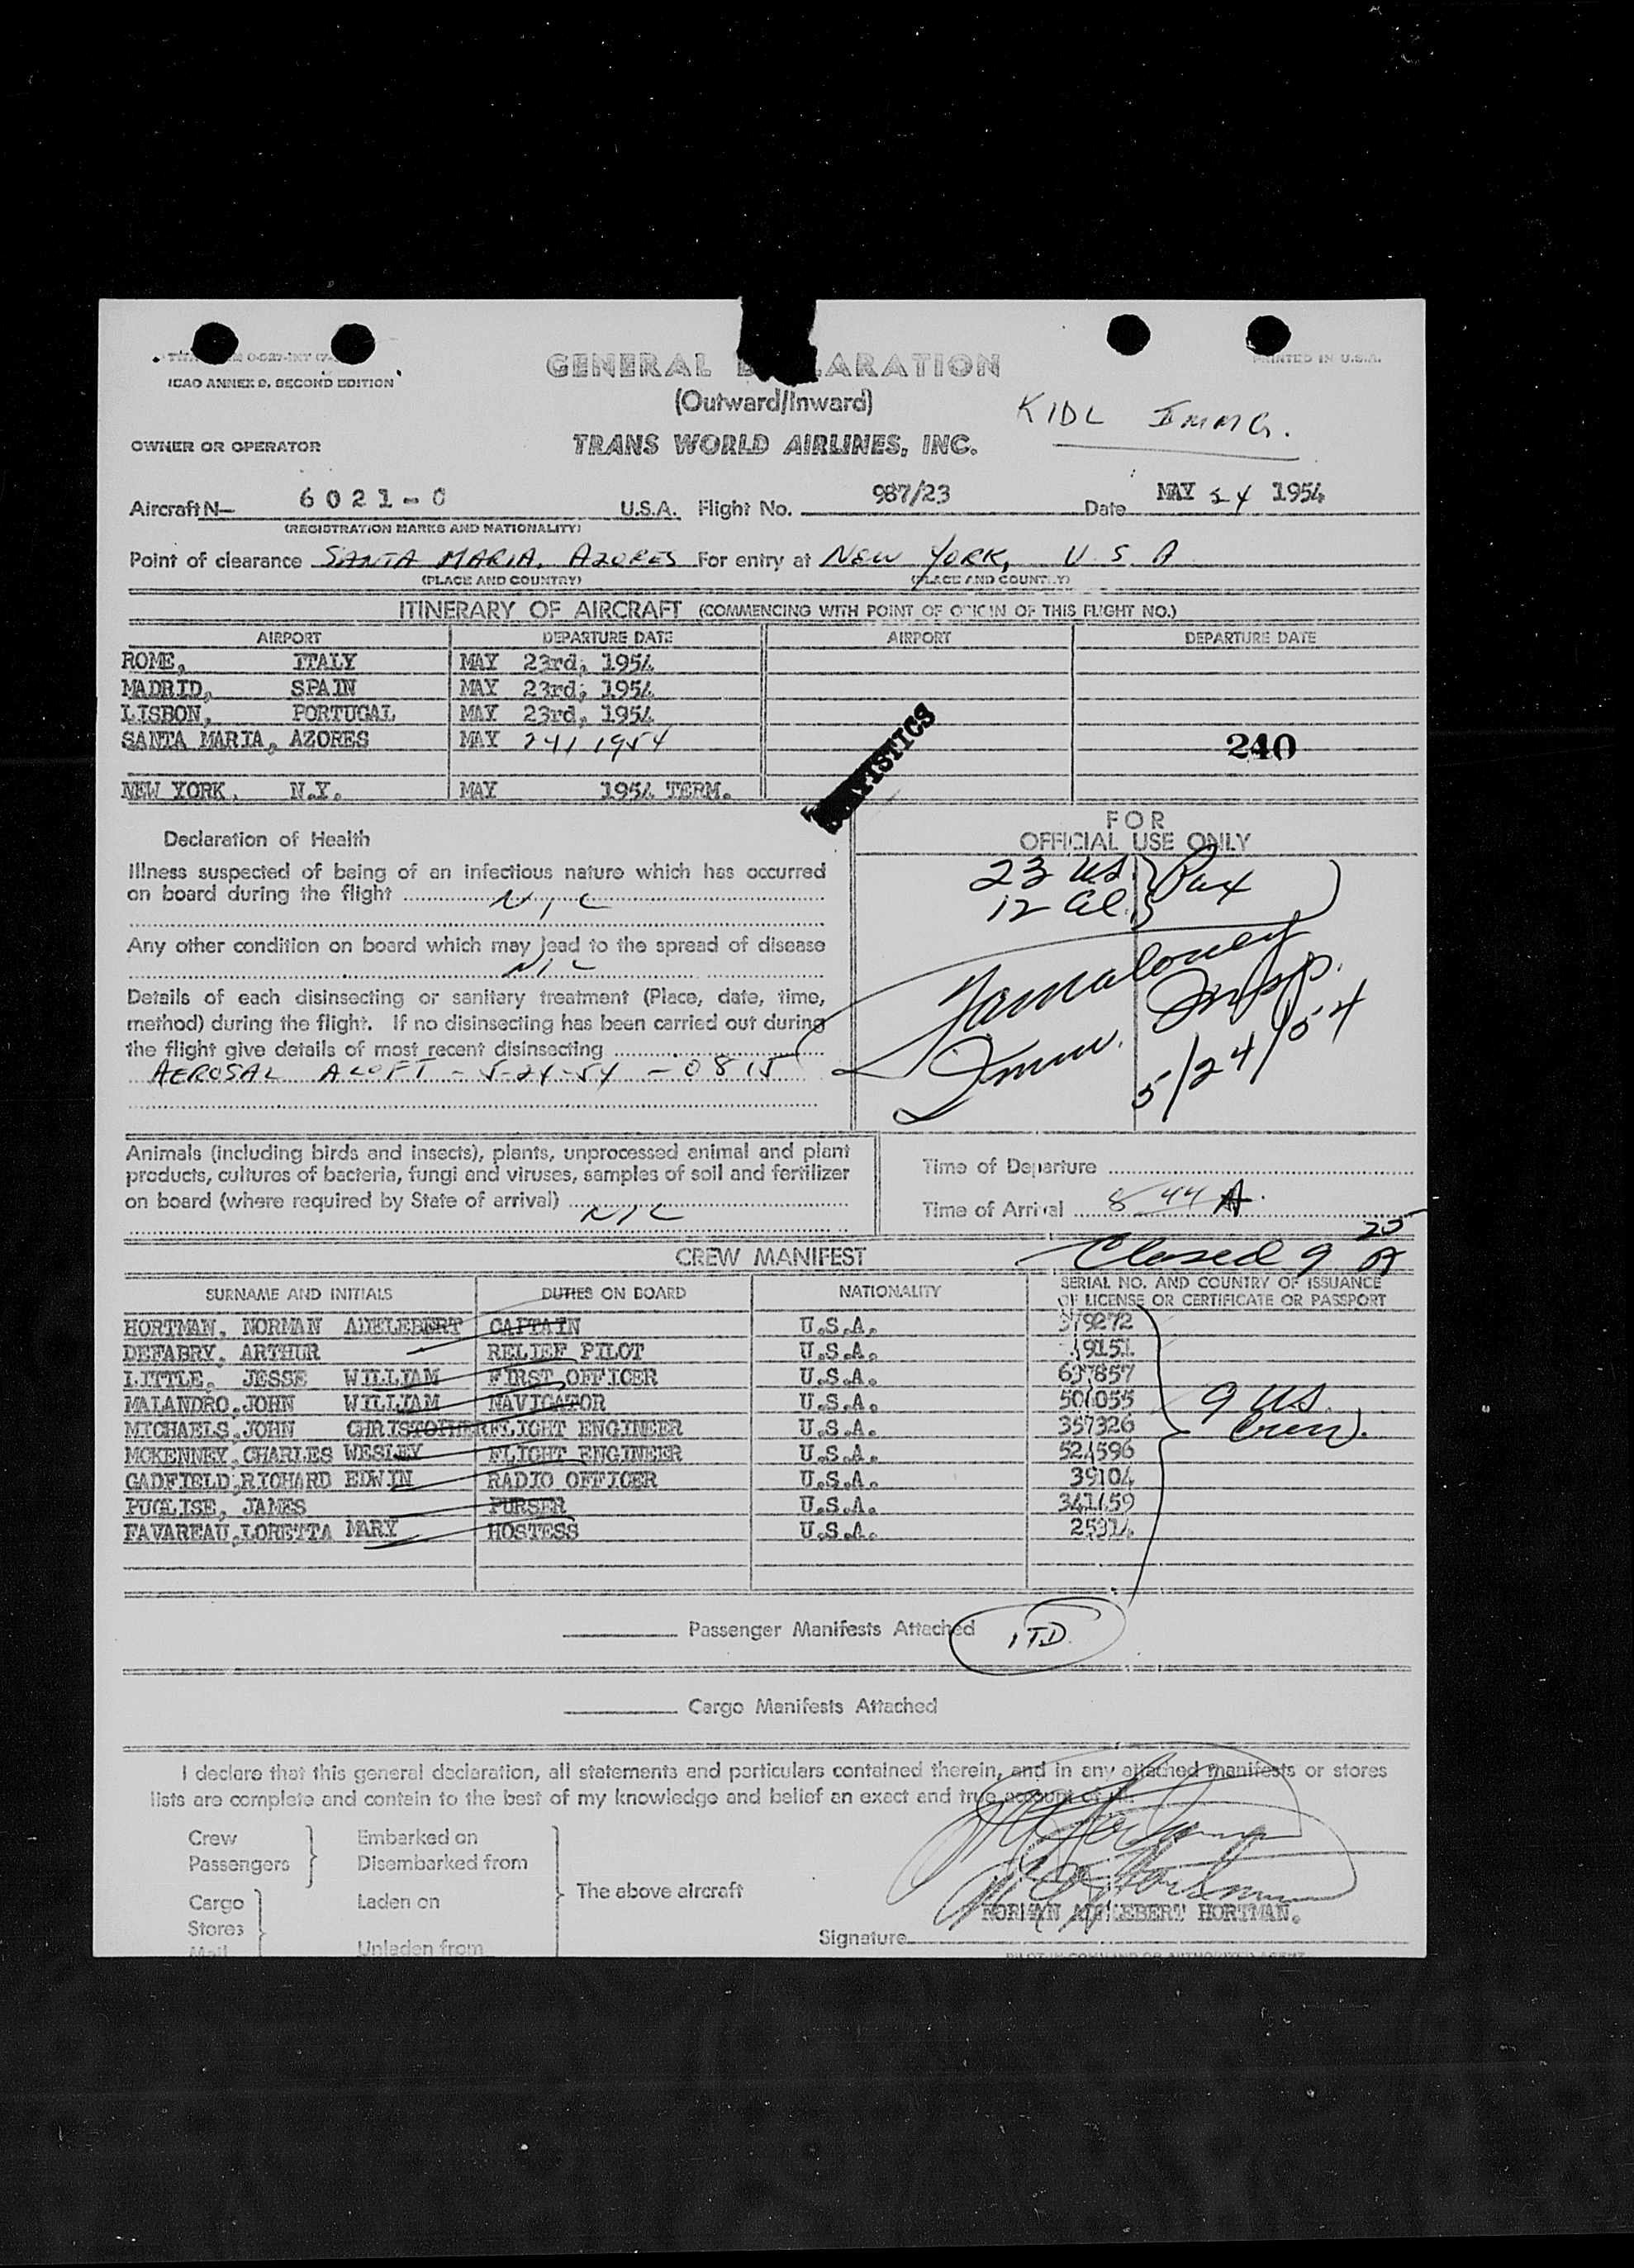 ICAO ANNEX 9, SECOND EDITION
PRINTED IN U.S.A.
GENERAL DECLARATION
(Outward/Inward)
KIDL IMMG.
OWNER OR OPERATOR
TRANS WORLD AIRLINES, INC.
Aircraft N— 6021-C U.S.A. Flight No. 987/23 Date MAY 24 1954
(REGISTRATION MARKS AND NATIONALITY)
Point of clearance SANTA MARIA, AZORES For entry at NEW YORK, U.S.A
(PLACE AND COUNTRY) (PLACE AND COUNTRY)
ITINERARY OF AIRCRAFT (COMMENCING WITH POINT OF ORIGIN OF THIS FLIGHT NO.)
AIRPORT DEPARTURE DATE AIRPORT DEPARTURE DATE
ROME, ITALY MAY 23rd, 1954
MADRID, SPAIN MAY 23rd, 1954
LISBON, PORTUGAL MAY 23rd, 1954
SANTA MARIA, AZORES MAY 24, 1954
240
NEW YORK, N.Y. MAY 1954 TERM.
STATISTICS
Declaration of Health
FOR
OFFICIAL USE ONLY
Illness suspected of being of an infectious nature which has occurred
on board during the flight NIL
23 US } Pax
12 Al.
Any other condition on board which may lead to the spread of disease
NIL
Details of each disinsecting or sanitary treatment (Place, date, time,
method) during the flight. If no disinsecting has been carried out during
the flight give details of most recent disinsecting
AEROSAL ALOFT - 5-24-54 - 0815
Imm. Insp.
5/24/54
Animals (including birds and insects), plants, unprocessed animal and plant
products, cultures of bacteria, fungi and viruses, samples of soil and fertilizer
on board (where required by State of arrival) NIL
Time of Departure
Time of Arrival 8 44 A.
Closed 9 25 A
CREW MANIFEST
SURNAME AND INITIALS DUTIES ON BOARD NATIONALITY SERIAL NO. AND COUNTRY OF ISSUANCE
OF LICENSE OR CERTIFICATE OR PASSPORT
HORTMAN, NORMAN ADELEBERT CAPTAIN U.S.A.
DEFABRY, ARTHUR RELIEF PILOT U.S.A.
LITTLE, JESSE WILLIAM FIRST OFFICER U.S.A.
MALANDRO, JOHN WILLIAM NAVIGATOR U.S.A.
MICHAELS, JOHN CHRISTOPHER FLIGHT ENGINEER U.S.A. 357326
MCKENNEY, CHARLES WESLEY FLIGHT ENGINEER U.S.A. 524596
GADFIELD, RICHARD EDWIN RADIO OFFICER U.S.A. 39104
PUGLISE, JAMES PURSER U.S.A.
FAVAREAU, LORETTA MARY HOSTESS U.S.A.
9 US
Crew.
Passenger Manifests Attached ITD
Cargo Manifests Attached
I declare that this general declaration, all statements and particulars contained therein, and in any attached manifests or stores
lists are complete and contain to the best of my knowledge and belief an exact and true account of all
Crew Embarked on
Passengers Disembarked from
The above aircraft
Cargo Laden on
Stores
Mail Unladen from
NORMAN ADELEBERT HORTMAN.
Signature
PILOT IN COMMAND OR AUTHORIZED AGENT